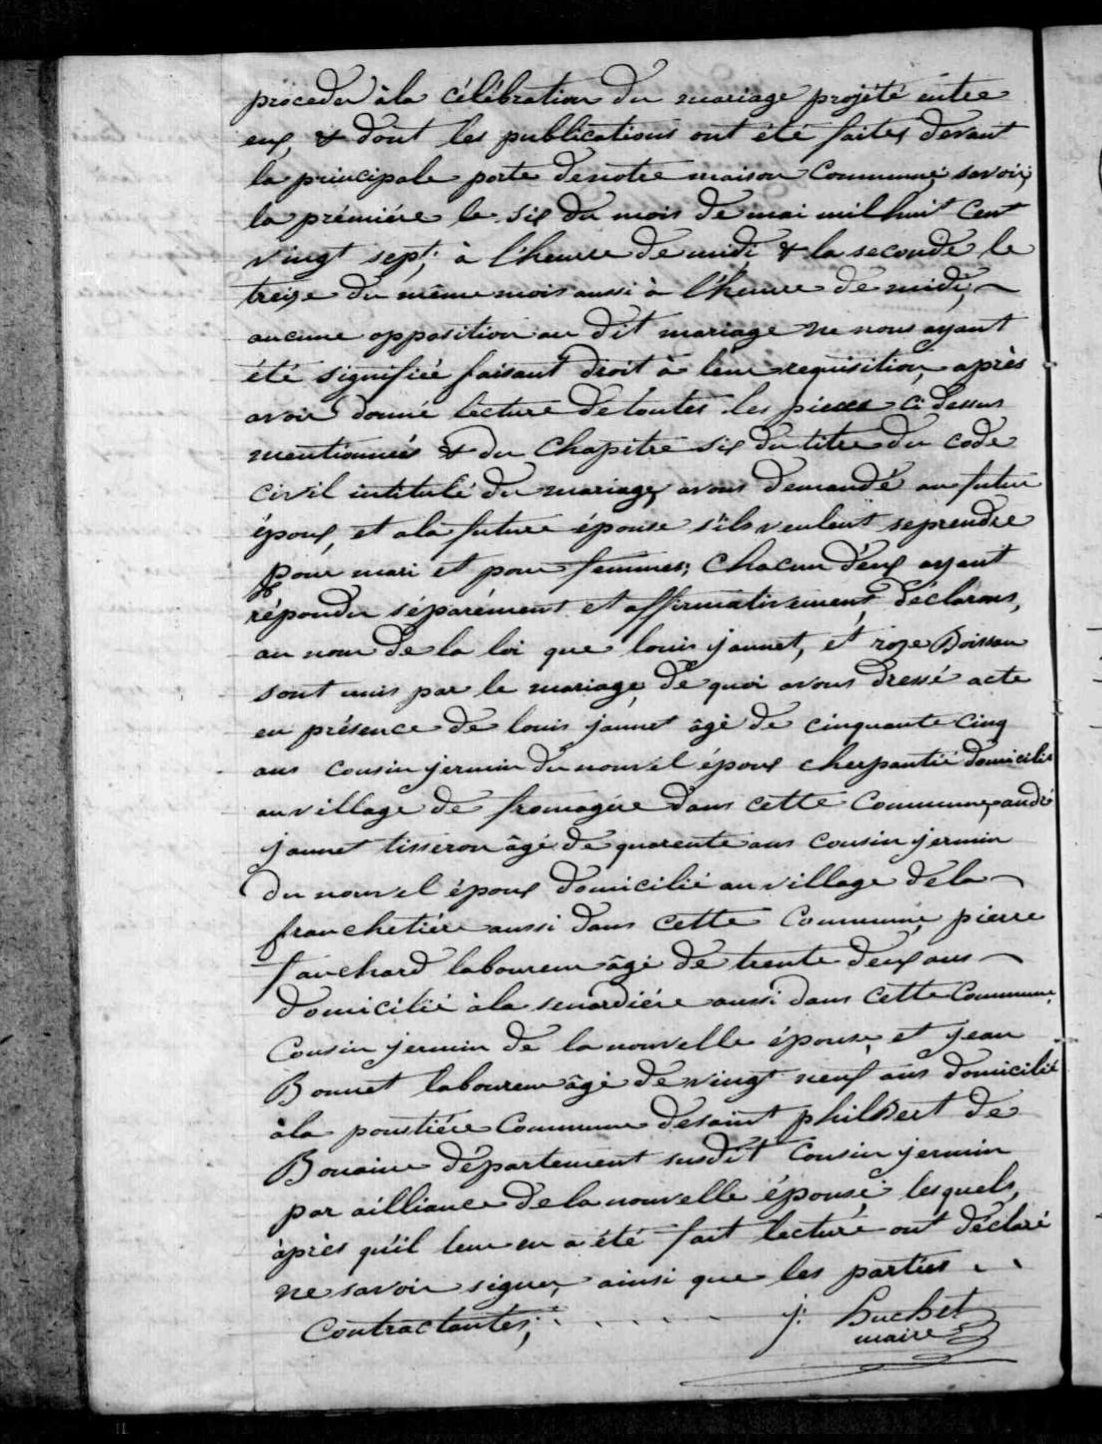 proceder à la célébration du mariage projété entre
eux, & dont les publications ont été faites devant
la principale porte de notre maison Commune, savoir;
la prémiére le six du mois de mai mil huit Cent
vingt sept; à l'heure de midi & la seconde le
treize du même mois aussi à l'heure de midi,
aucune opposition au dit mariage ne nous ayant
été signifiée faisant droit à leur requisition, après
avoir donné lecture de toutes les pieces ci dessus
mentionnées & du Chapitre six du titre du code
civil intitulé du mariage, avons demandé au futur
époux, et a la future épouse s'ils veulent se prendre
pour mari et pour femmes; Chacun d'eux ayant
répondu séparément et affirmativement, déclarons,
au nom de la loi que louis jaunet, et roze Boisseau
sont unis par le mariage, de quoi avons dressé acte
en présence de louis jaunet âgé de cinquante cinq
ans cousin jermin du nouvel époux cherpantié domicilié
au village de fromagére dans cette Commune, andré
jaunet tisseron âgé de quarente ans cousin jermin
du nouvel époux domicilié au village de la
franchetiére aussi dans cette Commune, pierre
fauchard laboureur âgé de trente deux ans
domicilié à la senardiére aussi dans cette Commune,
Cousin jermin de la nouvelle épouse, et jean
Bonnet laboureur âgé de vingt neuf ans domicilié
à la poustiére Commune de saint philbert de
Bouaine département susdit cousin jermin
par ailliance de la nouvelle épouse; lesquels,
après qu'il leur en a été fait lecture ont déclaré
ne savoir signer, ainsi que les parties
Contractantes;
j: huchet
maire